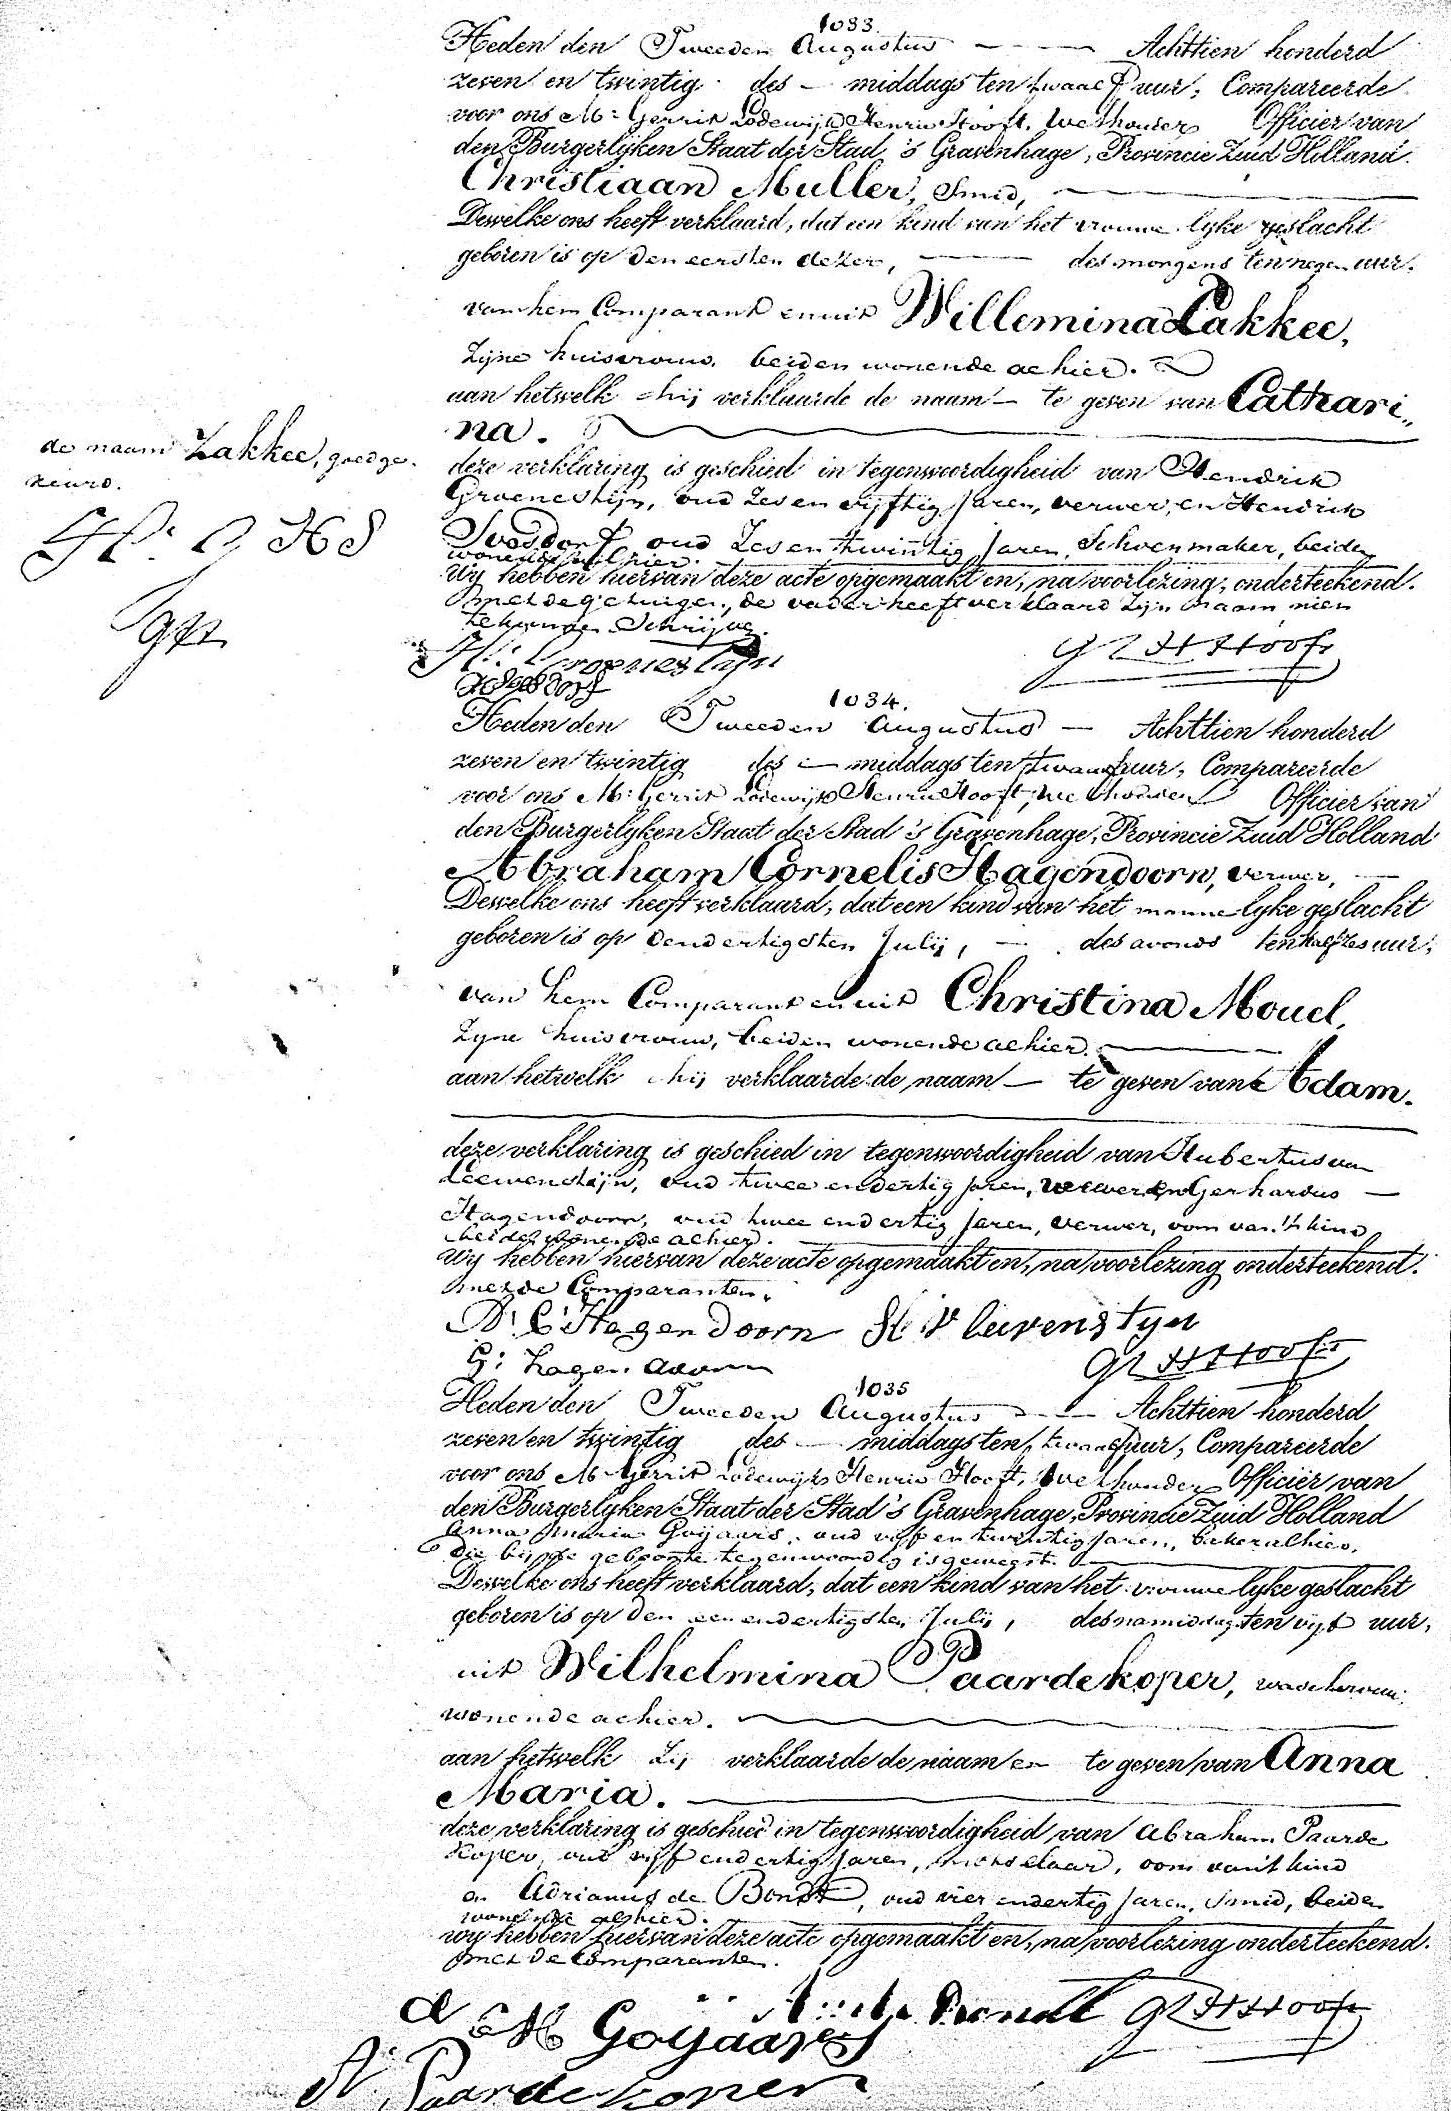 1033.
Heden den Tweeden Augustus Achttien honderd
zeven en twintig des middags ten twaalf uur, Compareerde
voor ons Mr. Gerrit Lodewijk Henric Hooft, Wethouder Officier van
den Burgerlyken Staat der Stad 's Gravenhage, Provincie Zuid Holland.
Christiaan Muller, Smid,
Dewelke ons heeft verklaard, dat een kind van het vrouwe lyke geslacht
geboren is op den eersten dezer, des morgens ten negen uur.
van hem Comparant en uit Willemina Lakkee,
zijne huisvrouw, beiden wonende alhier.
aan hetwelk hij verklaarde de naam te geven van Cathari„
na.
de naam Lakkee, goedge-
keurd.
deze verklaring is geschied in tegenwoordigheid van Hendrik
Groenestijn, oud zes en vijftig Jaren, verwer, en Hendrik
oud zes en twintig Jaren, Schoenmaker, beiden
wonende alhier.
Wy hebben hiervan deze acte opgemaakt en, na voorlezing, onderteekend.
met de getuigen, de vader heeft verklaard zijn naam niet
te kunnen Schrijven.
Hk. Groenestijn
G L H Hooft
1034.
Heden den Tweeden Augustus Achttien honderd
zeven en twintig des middags ten twaalf uur, Compareerde
voor ons Mr. Gerrit Lodewijk Henric Hooft, Wethouder Officier van
den Burgerlyken Staat der Stad 's Gravenhage, Provincie Zuid Holland
Abraham Cornelis Hagendoorn, verwer,
Dewelke ons heeft verklaard, dat een kind van het manne lyke geslacht
geboren is op den dertigsten Julij, des avonds ten half zes uur,
van hem Comparant en uit Christina Mouel,
zijne huisvrouw, beiden wonende alhier.
aan hetwelk hij verklaarde de naam te geven van Adam.
deze verklaring is geschied in tegenwoordigheid van Hubertus van
Leeuwenstijn, oud twee en dertig Jaren, verwer en Gerhardus
Hagendoorn, oud twee en dertig Jaren, verwer, oom van 't kind
beiden wonende alhier.
Wy hebben hiervan deze acte opgemaakt en, na voorlezing onderteekend.
met de Comparanten.
A: C: Hagendoorn H: V leevenstyn
G: hagendoorn G L H Hooft
1035
Heden den Tweeden Augustus Achttien honderd
zeven en twintig des middags ten twaalf uur, Compareerde
voor ons Mr. Gerrit Lodewijk Henric Hooft, Wethouder Officier van
den Burgerlyken Staat der Stad 's Gravenhage, Provincie Zuid Holland
Anna Maria Goijaars, oud vijf en twintig Jaren, baker alhier,
die bij de geboorte tegenwoordig is geweest.
Dewelke ons heeft verklaard, dat een kind van het vrouwe lyke geslacht
geboren is op den een en dertigsten Julij, des namiddags ten vijf uur,
uit Wilhelmina Paardekoper, waschvrouw
wonende alhier.
aan hetwelk zij verklaarde de naam en te geven van Anna
Maria.
deze verklaring is geschied in tegenwoordigheid van Abraham Paarde
koper, oud vijf en dertig Jaren, metselaar, oom van 't kind
en Adrianus de Bondt, oud vier en dertig Jaren, Smid, beiden
wonende alhier.
Wy hebben hiervan deze acte opgemaakt en, na voorlezing onderteekend.
met de Comparanten.
A M Goijaars G L H Hooft
A: Paardekoper